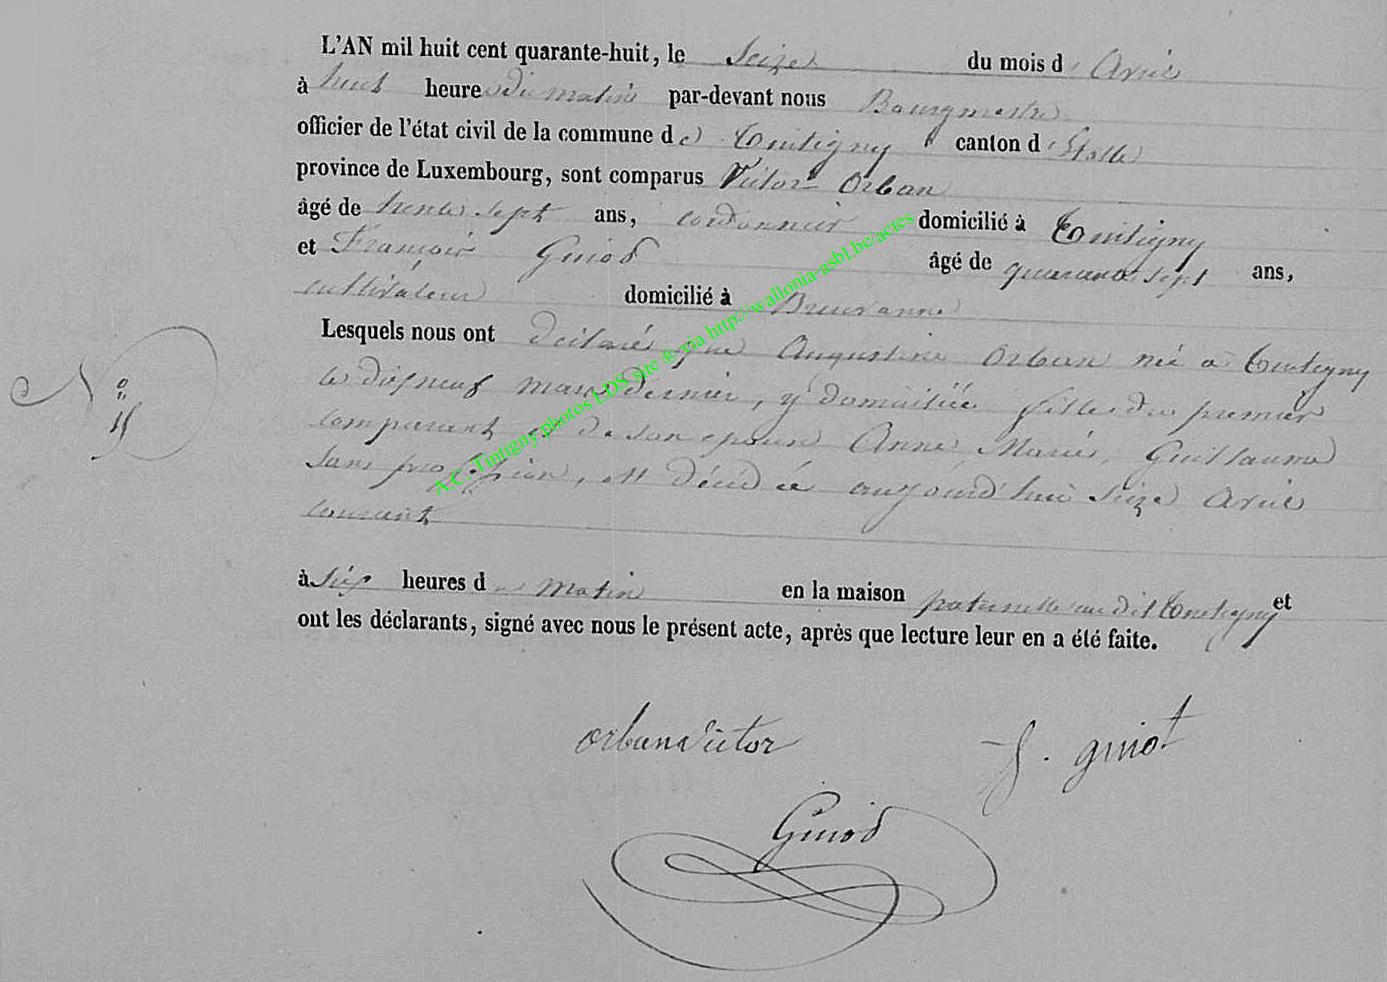 L'AN mil huit cent quarante-huit, le Seize du mois d'Avril
à huit heures du matin par-devant nous Bourgmestre
officier de l'état civil de la commune de Tintigny canton d'Etalle
province de Luxembourg, sont comparus Victor Orban
âgé de trente sept ans, cordonnier domicilié à Tintigny
et François Guiod âgé de quarante sept ans,
cultivateur domicilié à Breuvanne
Lesquels nous ont déclaré que Augustine Orban née à Tintigny
le dix neuf mars dernier, y domiciliée fille du premier
N° 11
comparant et de son epouse Anne Marie Guillaume
sans profession, est décédée aujourd'hui seize avril
courant
à six heures du matin en la maison paternelle au dit Tintigny et
ont les déclarants, signé avec nous le présent acte, après que lecture leur en a été faite.
orban Victor f. guiot
Guiod
A.C. Tintigny photos LDS site ® via http://wallonia-asbl.be/actes